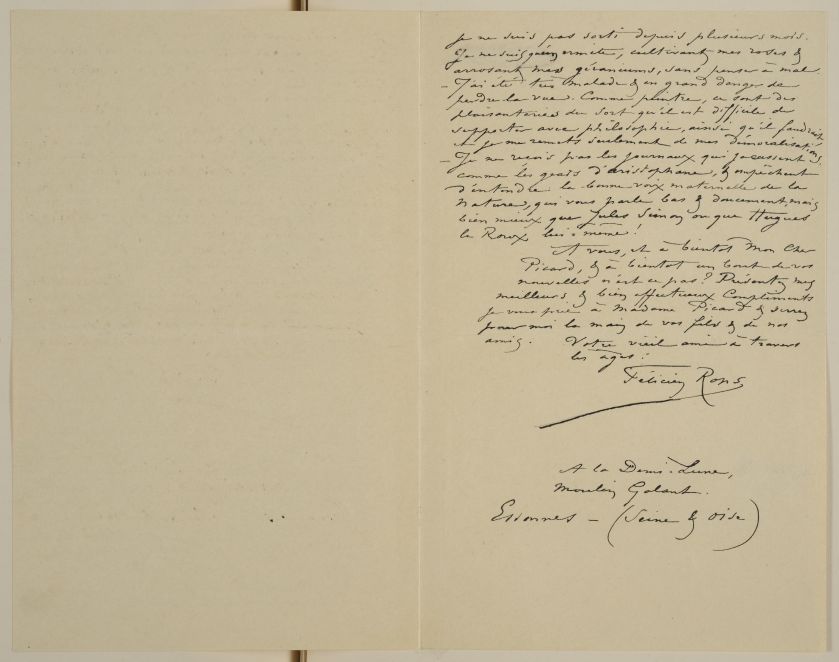 Je ne suis pas sorti depuis plusieurs mois.
Je ne suis qu'un ermite, cultivant mes roses &
arrosant mes géraniums, sans penser à mal.
– J'ai été très malade & en grand danger de
perdre la vue. Comme peintre, ce sont des
plaisanteries du sort qu'il est difficile de
supporter avec philosophie, ainsi qu'il faudrait
& je me remets seulement de mes démoralisations,
– Je ne reçois pas les journaux qui jacassent
comme les geais d'aristophane, & empêchent
d'entendre la bonne voix maternelle de la
Nature, qui vous parle bas & doucement, mais
bien mieux que Jules Simon ou que Hugues
le Roux lui-même!
A vous, et à bientot Mon Cher
Picard, & à bientot un bout de vos
nouvelles n'est ce pas? Présentez mes
meilleurs & bien affectueux Compliments
je vous prie à Madame Picard & serrez
pour moi la main de vos fils & de nos
amis. Votre vieil ami à travers
les âges!
Félicien Rops
A la Demi-Lune,
Moulin Galant.
Essonnes – (Seine & Oise)